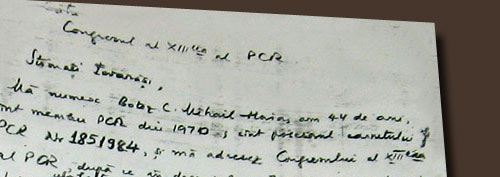 Congresul al XIII-lea al PCR
Stimați Tovarăși,
Mă numesc Botez C. Mihail-Horia, am 44 de ani,
sînt membru PCR din 1970, sînt posesorul carnetului
PCR Nr 1851984, și mă adresez Congresului al XIII-lea
al PCR, după ce